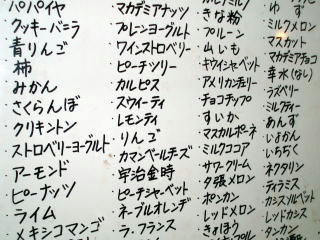 パパイヤ
クッキーバニラ
青りんご
柿
みかん
さくらんぼ
クリキントン
ストロベリーヨーグルト
アーモンド
ピーナッツ
ライム
メキシコマンゴ
・マカデミアナッツ
・プレーンヨーグルト
・ワインストロベリー
・ピーチツリー
・カルピス
・スウィーティ
・レモンティ
・りんご
・カマンベールチーズ
・宇治金時
・ピーチシャーベット
・ネーブルオレンヂ
・ラ・フランス
・きな粉
・プルーン
・山いも
・キウイシャーベット
・アメリカンチェリー
・チョコチップ
・すいか
・マスカルポーネ
・ミルクココア
・サワークリーム
・夕張メロン
・ポンカン
・レッドメロン
・きょほう
・ゆず
・ミルクメロン
・マスカット
・マカデミアチョコ
・幸水(なし)
・ラズベリー
・ミルクティー
・あんず
・いよかん
・いちぢく
・ネクタリン
・ティラミス
・カシスソルベット
・レッドカシス
・タンカン